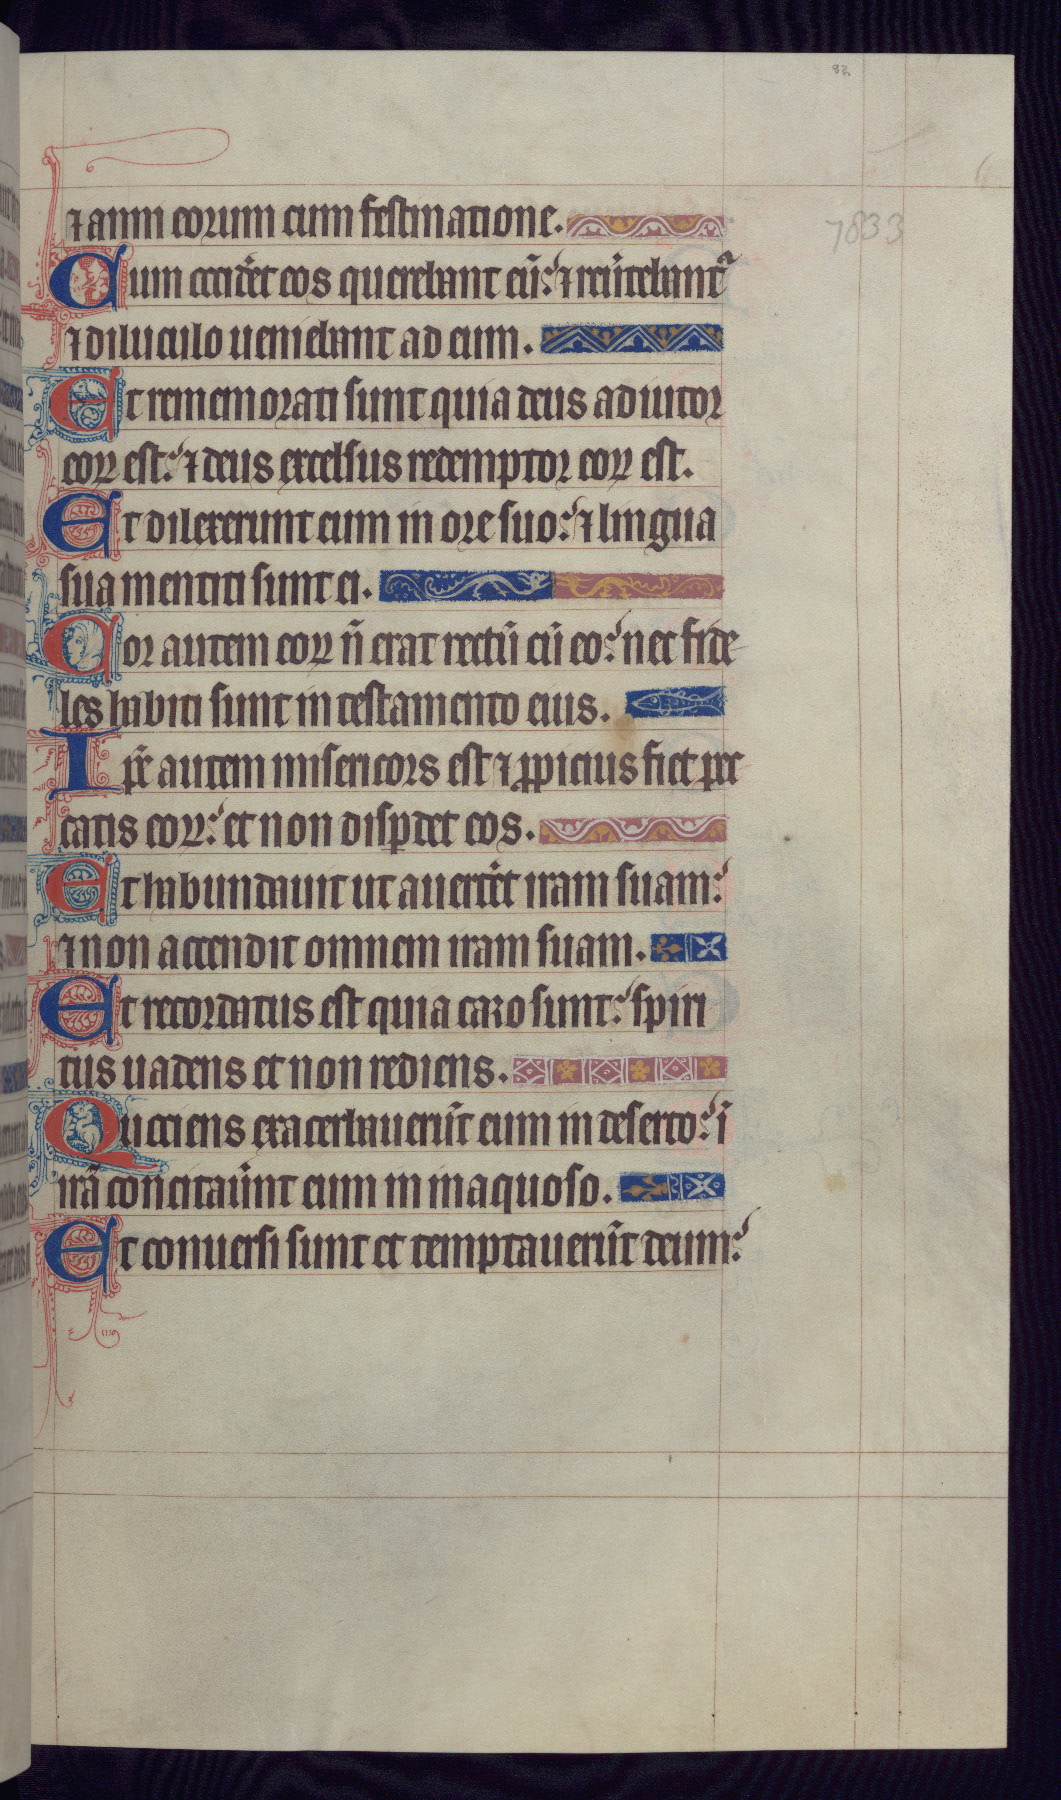 82
7833
⁊ anni eorum cum festinatione.
Cum occidĕt eos querebant eū: ⁊ reūtebant᷑
⁊ diluculo ueniebant ad eum.
Et rememorati sunt quia deus adiutor
eoꝝ est: ⁊ deus excelsus redemptor eoꝝ est.
Et dilexerunt eum in ore suo: ⁊ lingua
sua mentiti sunt ei.
Cor autem eoꝝ n̄ erat rectū cū eo: nec fide-
les habiti sunt in testamento eius.
Ip̄e autem misericors est ⁊ ꝓpicius fiet pec-
catis eoꝝ: et non disꝑdet eos.
Et habundauit ut auertēt iram suam:
⁊ non accendit omnem iram suam.
Et recordatus est quia caro sunt: spiri
tus uadens et non rediens.
Quociens exacerbauerūt eum in deserto: ī
irā concitaūnt eum in inaquoso.
Et conuersi sunt et temptauerūt deum: